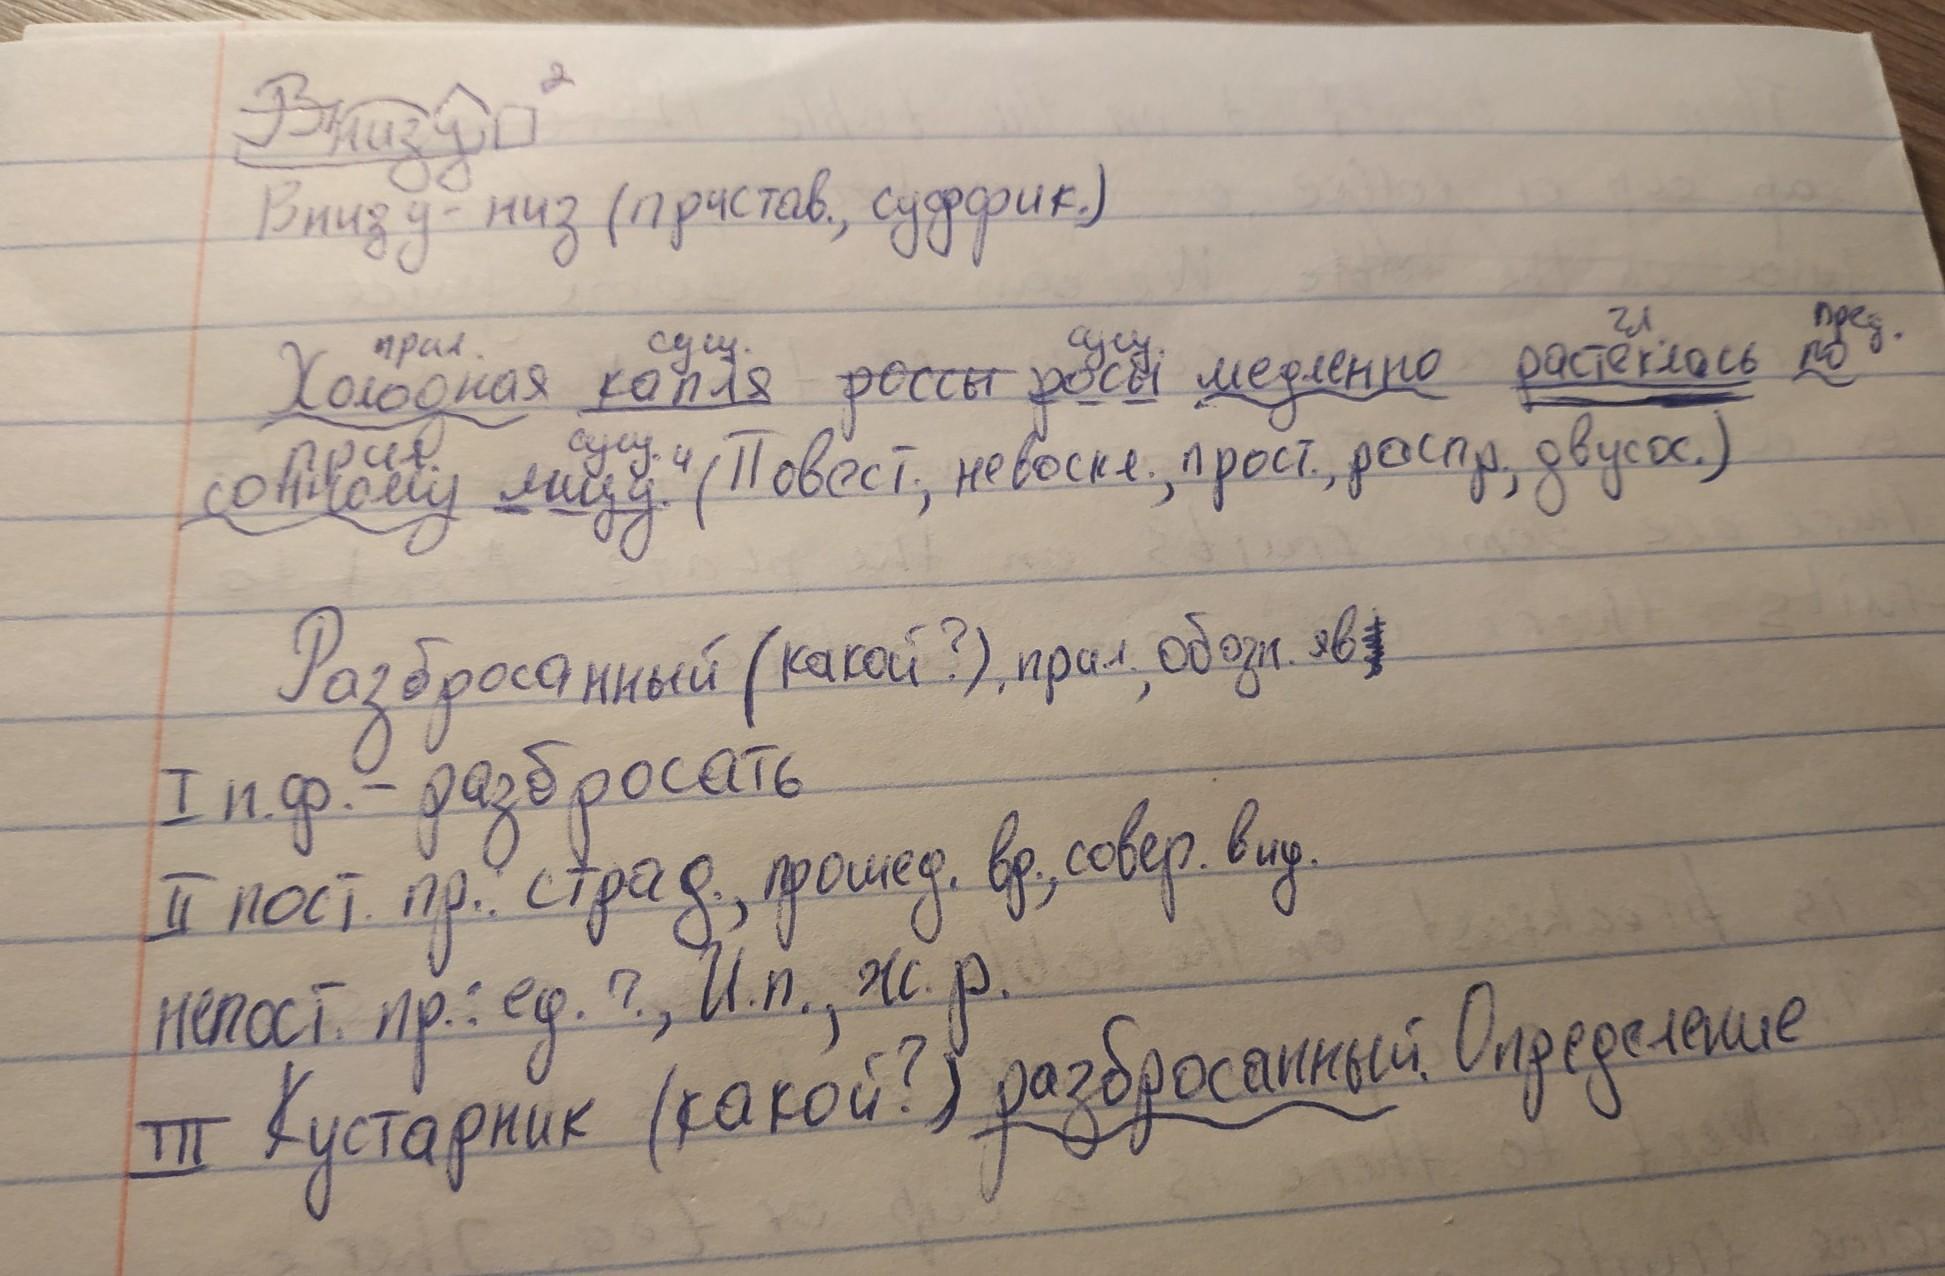 Внизу 2
Внизу - низ (пристав., суффик.)
прил. сущ. сущ. гл пред.
Холодная капля россы росы медленно растеклась по
прил сущ.
сонному лицу. 4 (Повест., невоскл., прост., распр., двусос.)
Разбросанный (какой?), прил., обозн. яв
I п.ф. - разбросать
II пост. пр.: страд., прошед. вр., совер. вид.
непост. пр.: ед. ч., И.п., ж.р.
III Кустарник (какой?) разбросанный. Определение